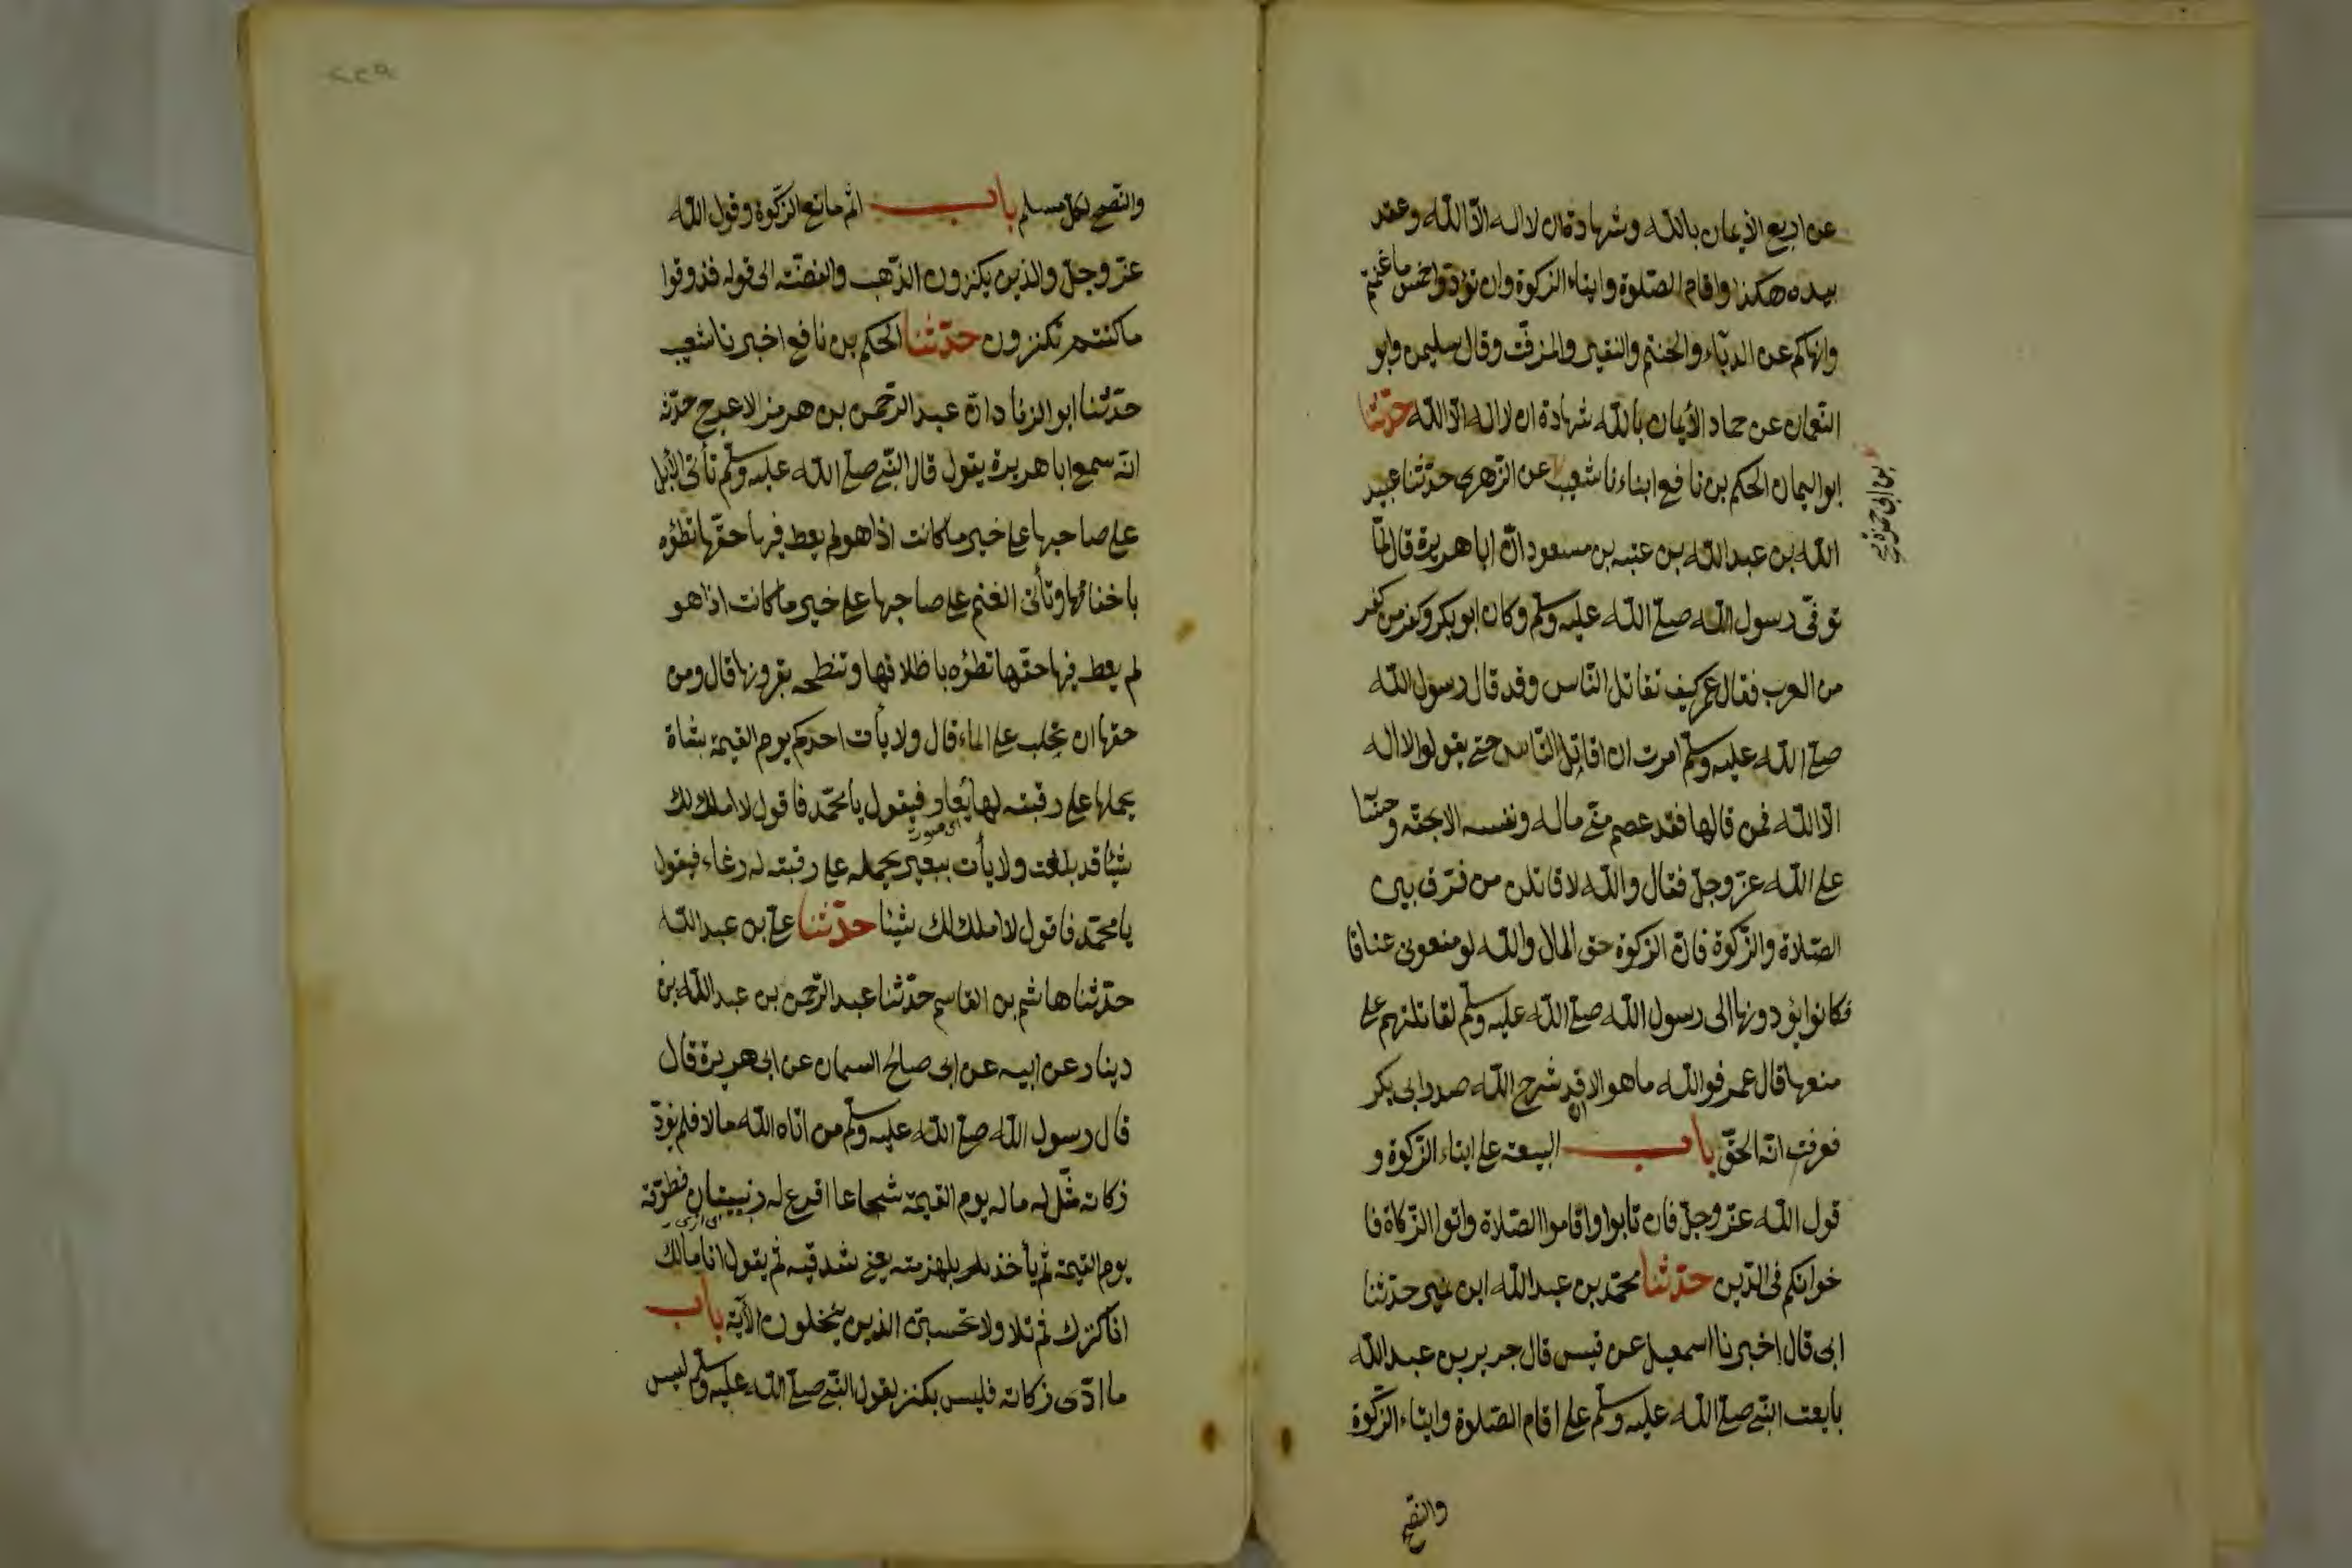 عن اربع الأيمان بالله وشهادة ان لا اله الا الله وعقد
بيده هكذا واقام الصلوة وايتاء الزكوة وان تؤدوا خمس ما غنمتم
وانهاكم عن الدباء والحنتم والنقير والمزفت وقال سليمن وابو
النعمان عن حماد الأيمان بالله شهادة ان لا اله الا الله حدثنا
ابو اليمان الحكم بن نافع انباءنا شعيب عن الزهري حدثنا عبيد
بن ابي حمزة
الله بن عبد الله بن عتبه بن مسعود ان ابا هريرة قال لما
توفي رسول الله صلى الله عليه وسلم وكان ابو بكر وكفر من كفر
من العرب فقال عمر كيف تقاتل الناس وقد قال رسول الله
صلى الله عليه وسلم امرت ان اقاتل الناس حتى يقولوا لا اله
الا الله فمن قالها فقد عصم مني ماله ونفسه الا بحقه وحسابه
على الله عز وجل فقال والله لاقاتلن من فرق بين
الصلاة والزكوة فان الزكوة حق المال والله لو منعوني عناقا
فكانوا يؤدونها الى رسول الله صلى الله عليه وسلم لقاتلتهم على
منعها قال عمر فوالله ما هو الا ان قد شرح الله صدر ابي بكر
فعرفت انه الحق باب البيعة على ايتاء الزكوة و
قول الله عز وجل فان تابوا واقاموا الصلاة واتوا الزكاة فا
خوانكم في الدين حدثنا محمد بن عبد الله ابن نمير حدثنا
ابي قال اخبرنا اسمعيل عن قيس قال جرير بن عبد الله
بايعت النبي صلى الله عليه وسلم على اقام الصلوة وايتاء الزكوة
والنصح
والنصح لكل مسلم باب اثم مانع الزكوة وقول الله
عز وجل والذين يكنزون الذهب والفضة الى قوله فذوقوا
ما كنتم تكنزون حدثنا الحكم بن نافع اخبرنا شعيب
حدثنا ابو الزناد ان عبد الرحمن بن هرمز الاعرج حدثه
انه سمع ابا هريرة يقول قال النبي صلى الله عليه وسلم تأتي الأبل
على صاحبها على خير ما كانت اذا هو لم يعط فيها حقها تطؤه
باخفافها وتأتي الغنم على صاحبها على خير ما كانت اذا هو
لم يعط فيها حقها تطؤه باظلافها وتنطحه بقرونها قال ومن
حقها ان تحلب على الماء قال ولا يأت احدكم يوم القيمة بشاة
يحملها على رقبته لها يعار فيقول يا محمد فاقول لا املك لك
اي صوت
شيئا قد بلغت ولا يأت ببعير يحمله على رقبته له رغاء فيقول
يا محمد فاقول لا املك لك شيئا حدثنا علي بن عبد الله
حدثنا هاشم بن القاسم حدثنا عبد الرحمن بن عبد الله بن
دينار عن ابيه عن ابي صالح السمان عن ابي هريرة قال
قال رسول الله صلى الله عليه وسلم من اتاه الله مالا فلم يؤد
زكاته مثل له ماله يوم القيمة شجاعا اقرع له زبيبتان يطوقه
يوم القيمة ثم يأخذ بلهزمته يعني شدقيه ثم يقول انا مالك
انا كنزك ثم تلا ولا تحسبن الذين يبخلون الآية باب
ما ادى زكاته فليس بكنز لقول النبي صلى الله عليه وسلم ليس